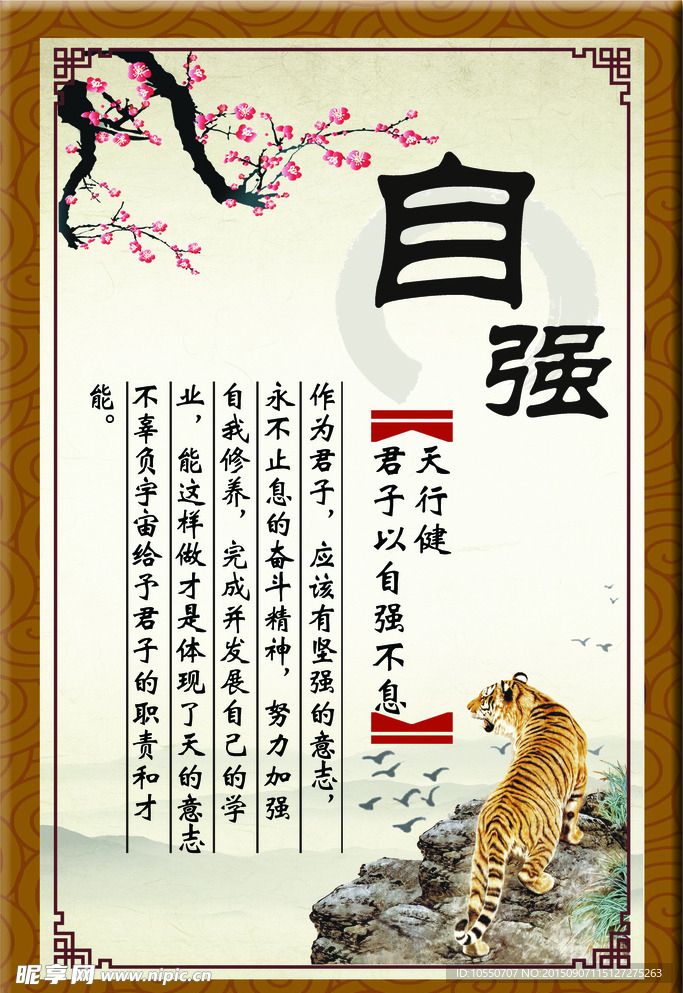 自强
天行健
君子以自强不息
作为君子，应该有坚强的意志，
永不止息的奋斗精神，努力加强
自我修养，完成并发展自己的学
业，能这样做才是体现了天的意志
不辜负宇宙给予君子的职责和才
能。
昵享网 www.nipic.cn
ID:10550707 NO:20150907115127275263